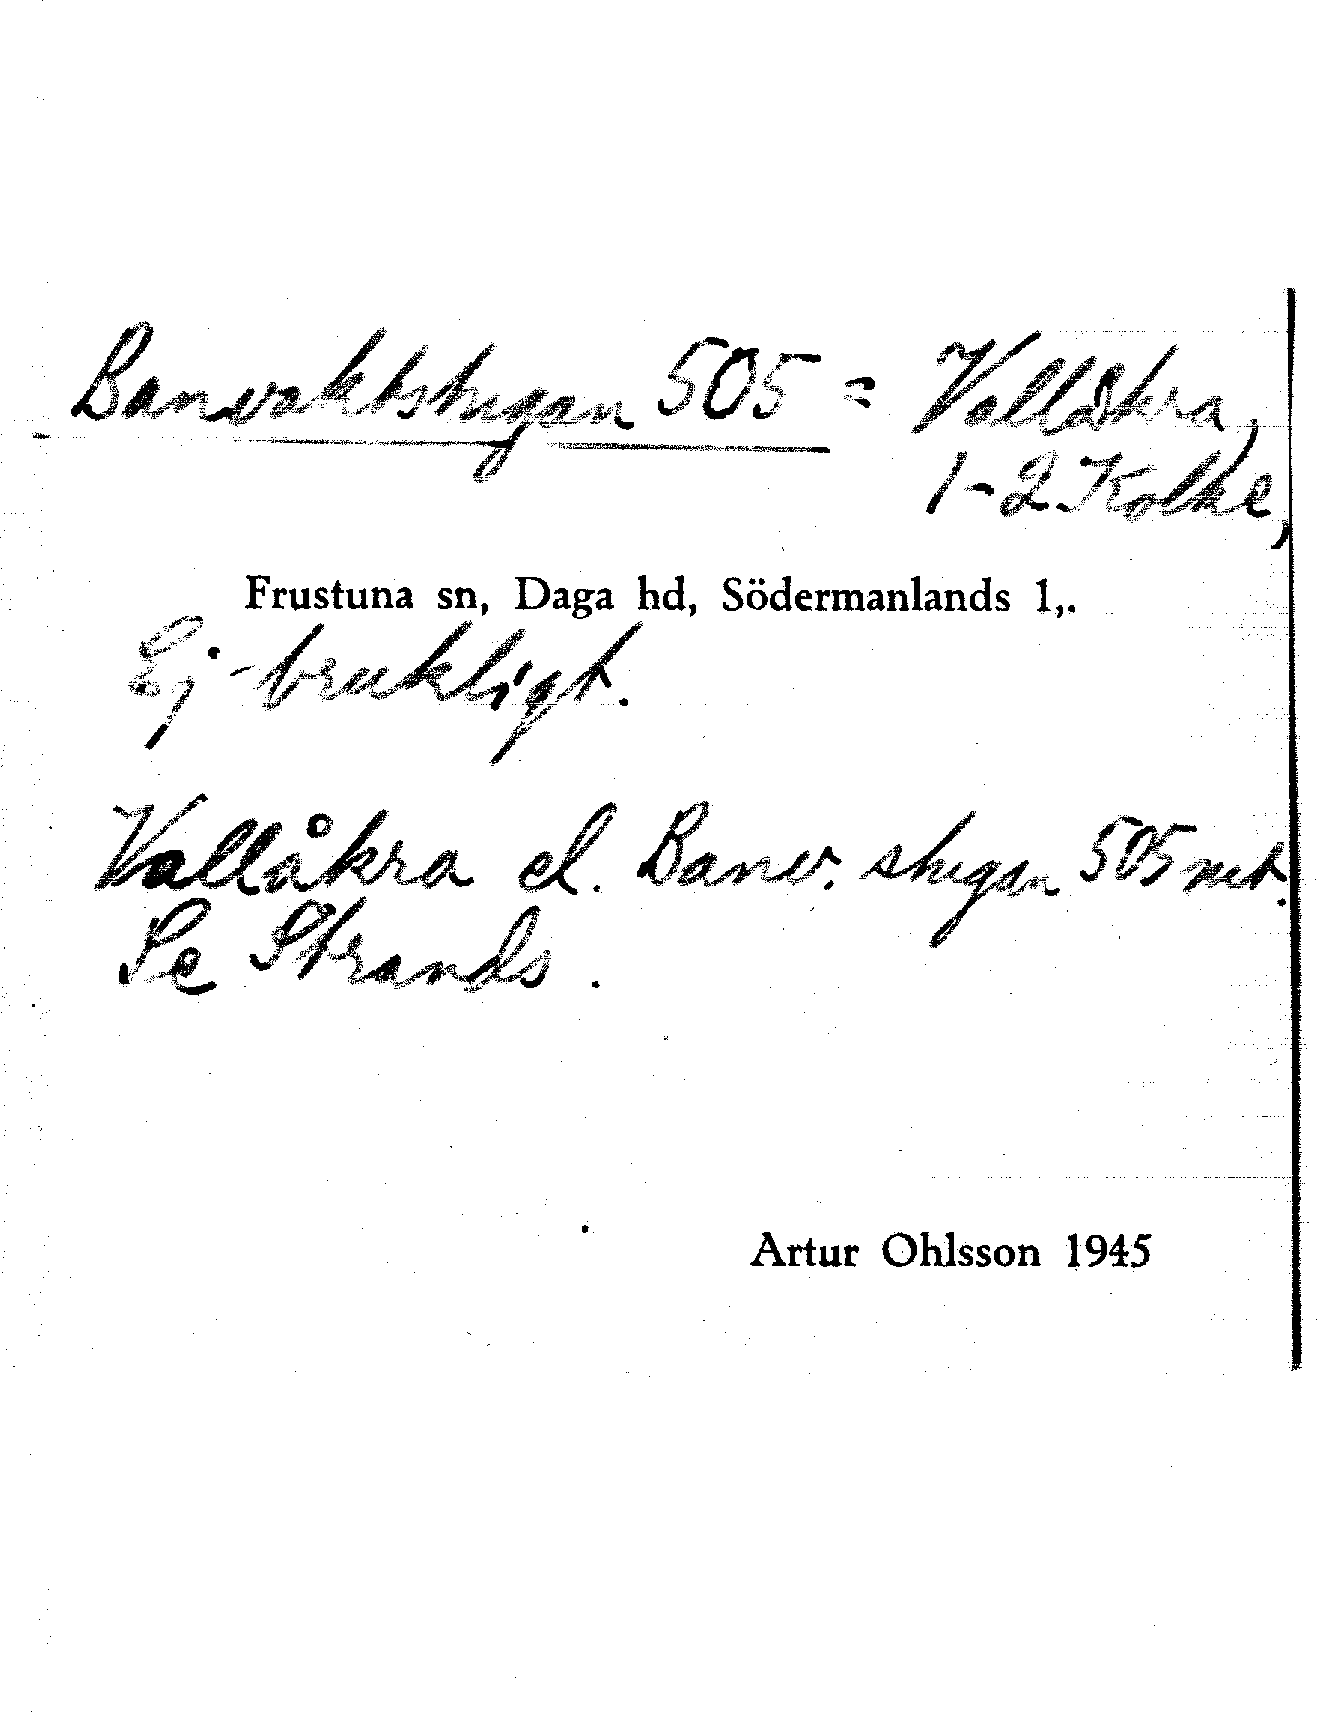 Banvaktstugan 505 = Vallåkra,
1-2 Kolke,
Frustuna sn, Daga hd, Södermanlands l,.
Ej brukligt.
Vallåkra el. Banv. stugan 505
Se Strands.
Artur Ohlsson 1945